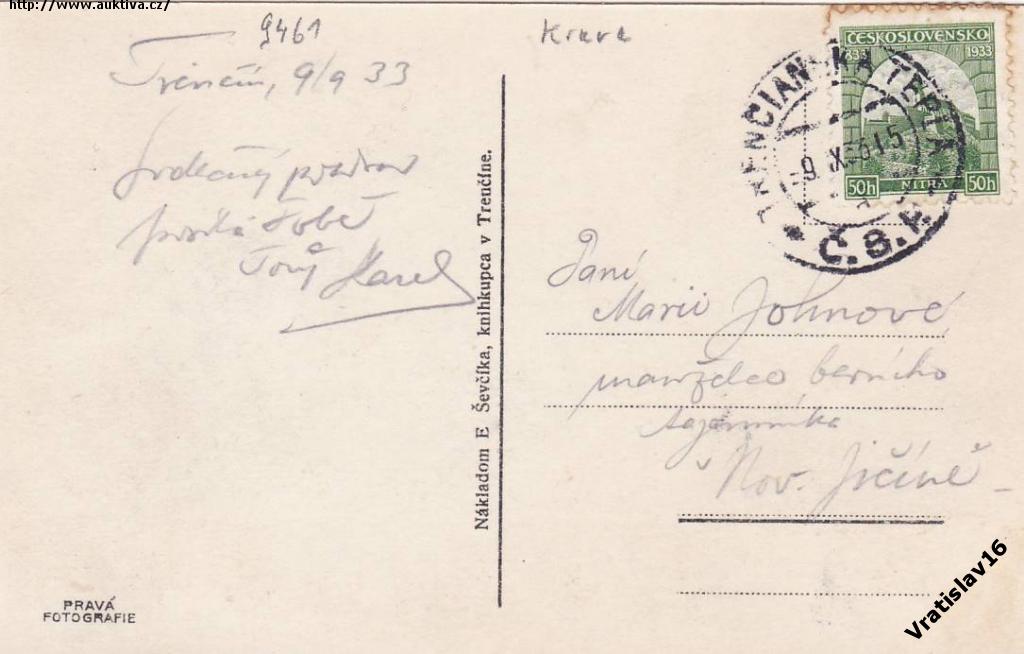 http://www.auktiva.cz/
9461
Krava
Trenčín, 9/9 33
Srdečný pozdrav
posílá Tobě
Tvůj Karel
Nákladom E Ševčíka, knihkupca v Trenčíne.
PRAVÁ
FOTOGRAFIE
ČESKOSLOVENSKO
833 1933
50h NITRA 50h
TRENČIANSKA TEPLÁ
Č.S.R.
Paní
Marii Johnové
manželce berního
tajemníka
Nov. Jičíně
Vratislav16